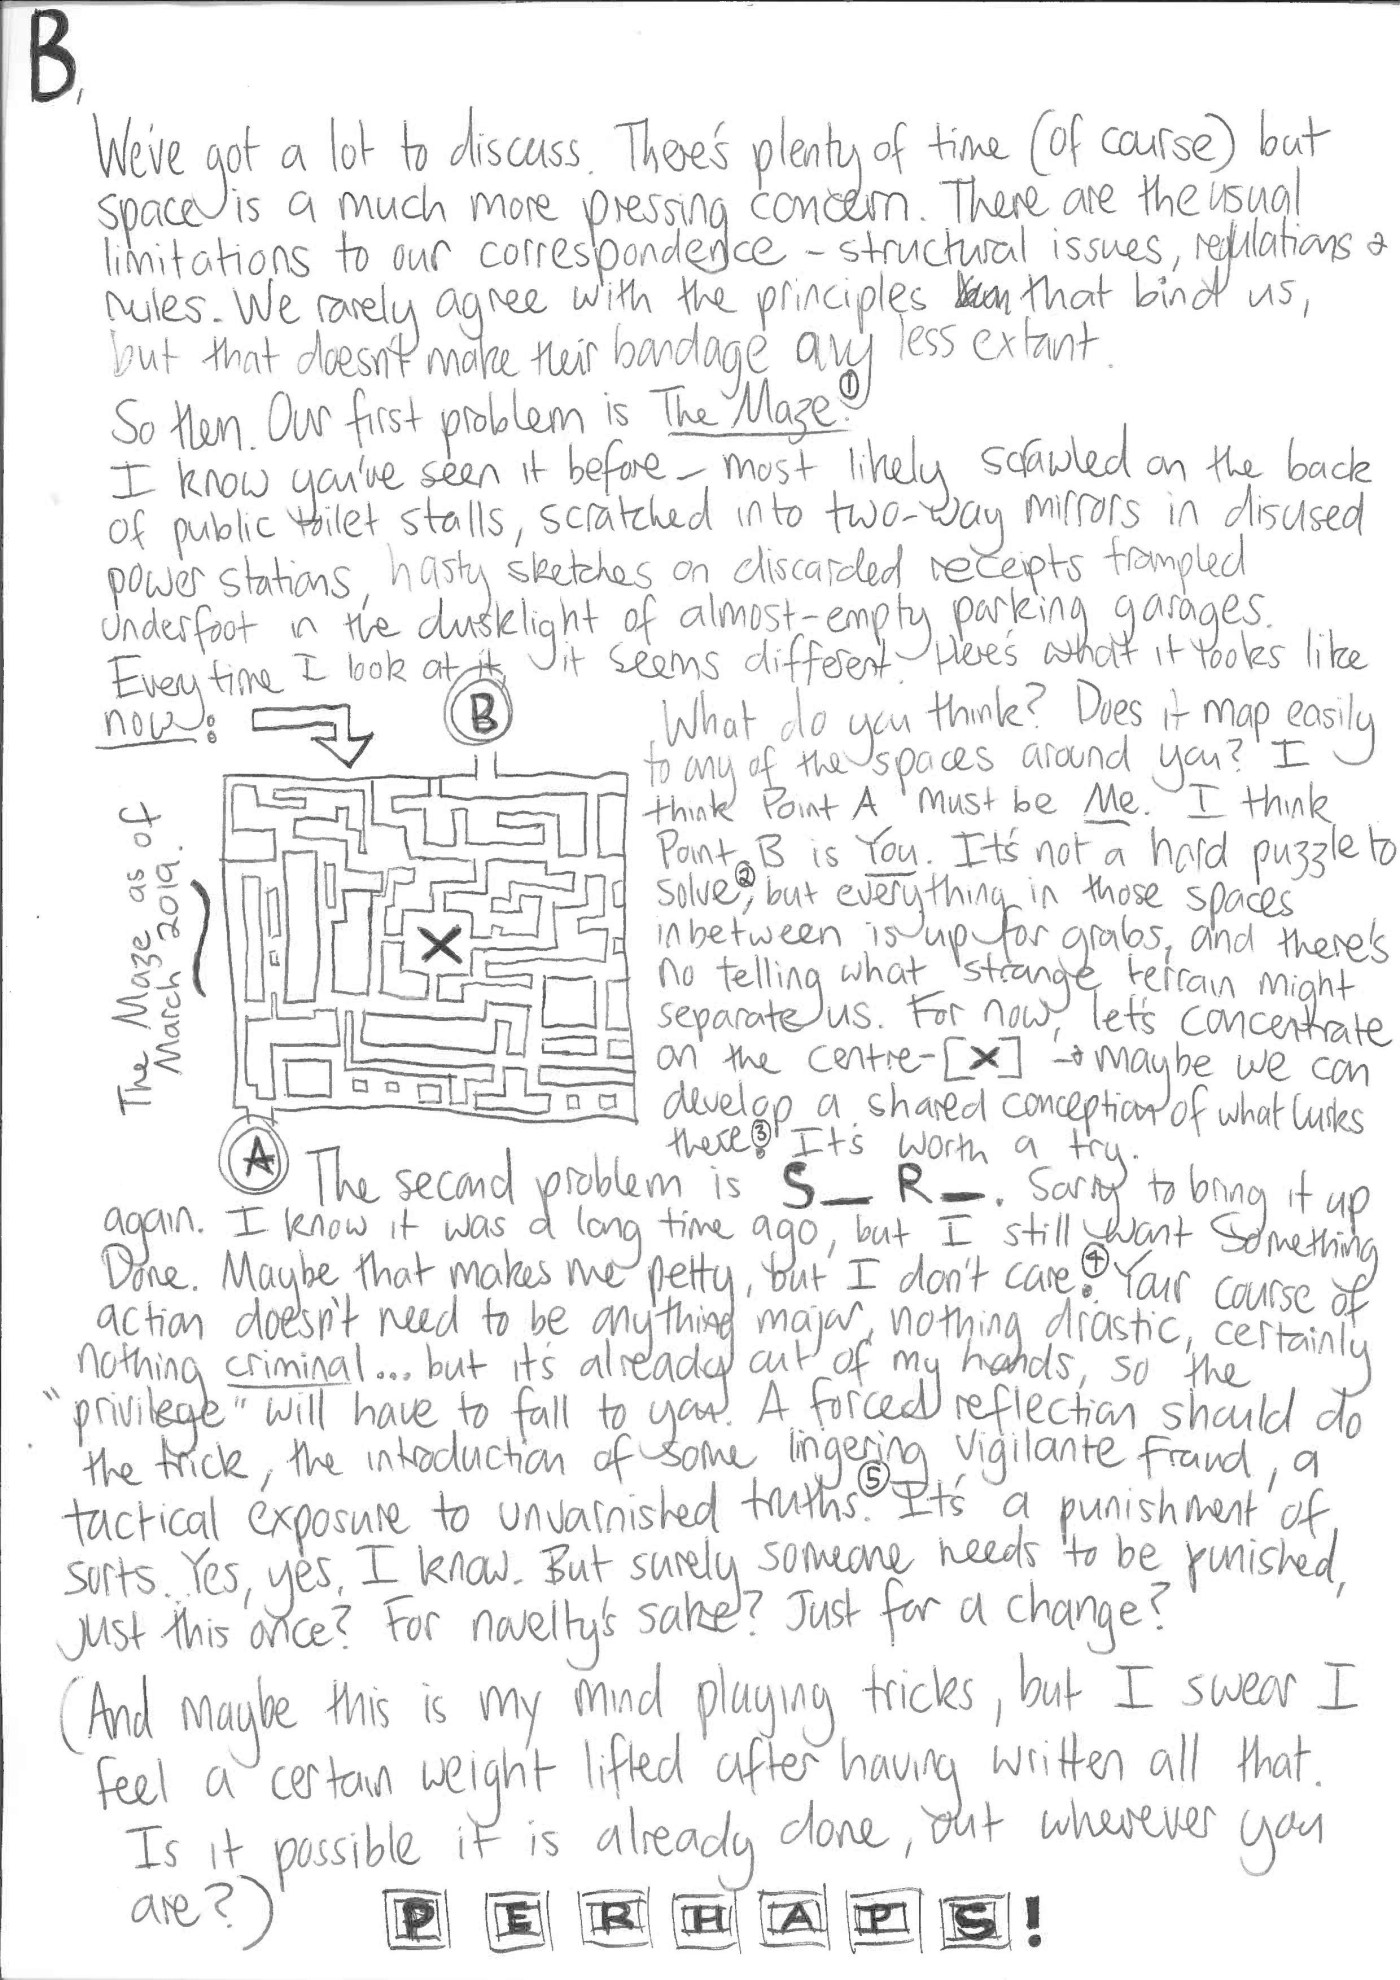 B,
We've got a lot to discuss. There's plenty of time (of course) but
space is a much more pressing concern. There are the usual
limitations to our correspondence – structural issues, regulations &
rules. We rarely agree with the principles that bind us,
but that doesn't make their bandage any less extant.
So then. Our first problem is The Maze.①
I know you've seen it before – most likely scrawled on the back
of public toilet stalls, scratched into two-way mirrors in disused
power stations, hasty sketches on discarded receipts trampled
underfoot in the dusklight of almost-empty parking garages.
Every time I look at it, it seems different. Here's what it looks like
now:
B
The Maze as of
March 2019.
X
A
What do you think? Does it map easily
to any of the spaces around you? I
think Point A must be Me. I think
Point B is You. It's not a hard puzzle to
solve②, but everything in those spaces
inbetween is up for grabs, and there's
no telling what strange terrain might
separate us. For now, let's concentrate
on the centre–[X] → maybe we can
develop a shared conception of what lurks
there③. It's worth a try.
The second problem is S__ R__. Sorry to bring it up
again. I know it was a long time ago, but I still want Something
Done. Maybe that makes me petty, but I don't care④. Your course of
action doesn't need to be anything major, nothing drastic, certainly
nothing criminal... but it's already out of my hands, so the
"privilege" will have to fall to you. A forced reflection should do
the trick, the introduction of some lingering vigilante fraud, a
tactical exposure to unvarnished truths.⑤ It's a punishment of
sorts. Yes, yes, I know. But surely someone needs to be punished,
just this once? For novelty's sake? Just for a change?
(And maybe this is my mind playing tricks, but I swear I
feel a certain weight lifted after having written all that.
Is it possible it is already done, out wherever you
are?)
PERHAPS!